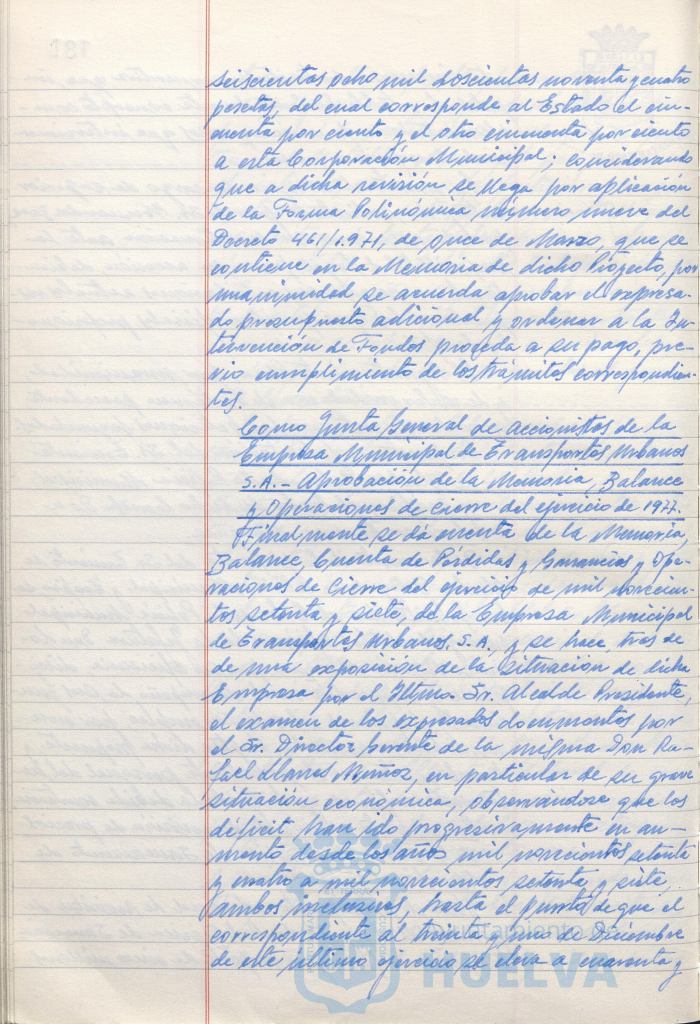 seiscientas ocho mil doscientas noventa y cuatro
pesetas, del cual corresponde al Estado el cin-
cuenta por ciento y el otro cincuenta por ciento
a esta Corporación Municipal; considerando
que a dicha revisión se llega por aplicación
de la Forma Polinómica número nueve del
Decreto 461/1.971, de once de Marzo, que se
contiene en la Memoria de dicho Proyecto, por
unanimidad se acuerda aprobar el expresa-
do presupuesto adicional y ordenar a la In-
tervención de Fondos proceda a su pago, pre-
vio cumplimiento de los trámites correspondien-
tes.
Como Junta General de accionistas de la
Empresa Municipal de Transportes Urbanos
S.A.- Aprobación de la Memoria, Balance
y Operaciones de Cierre del ejercicio de 1977.
Finalmente se dá cuenta de la Memoria,
Balance, Cuenta de Pérdidas y Ganancias y Ope-
raciones de Cierre del ejercicio de mil novecien-
tos setenta y siete, de la Empresa Municipal
de Transportes Urbanos. S.A., y se hace, tras de
de una exposición de la situación de dicha
Empresa por el Iltmo. Sr. Alcalde Presidente,
el examen de los expresados documentos por
el Sr. Director Gerente de la misma Don Ra-
fael Llanes Muñoz, en particular de su grave
situación económica, observándose que los
déficit han ido progresivamente en au-
mento desde los años mil novecientos setenta
y cuatro a mil novecientos setenta y siete,
ambos inclusives, hasta el punto de que el
correspondiente al treinta y uno de Diciembre
de este último ejercicio se eleva a cuarenta y
Ayuntamiento de
HUELVA